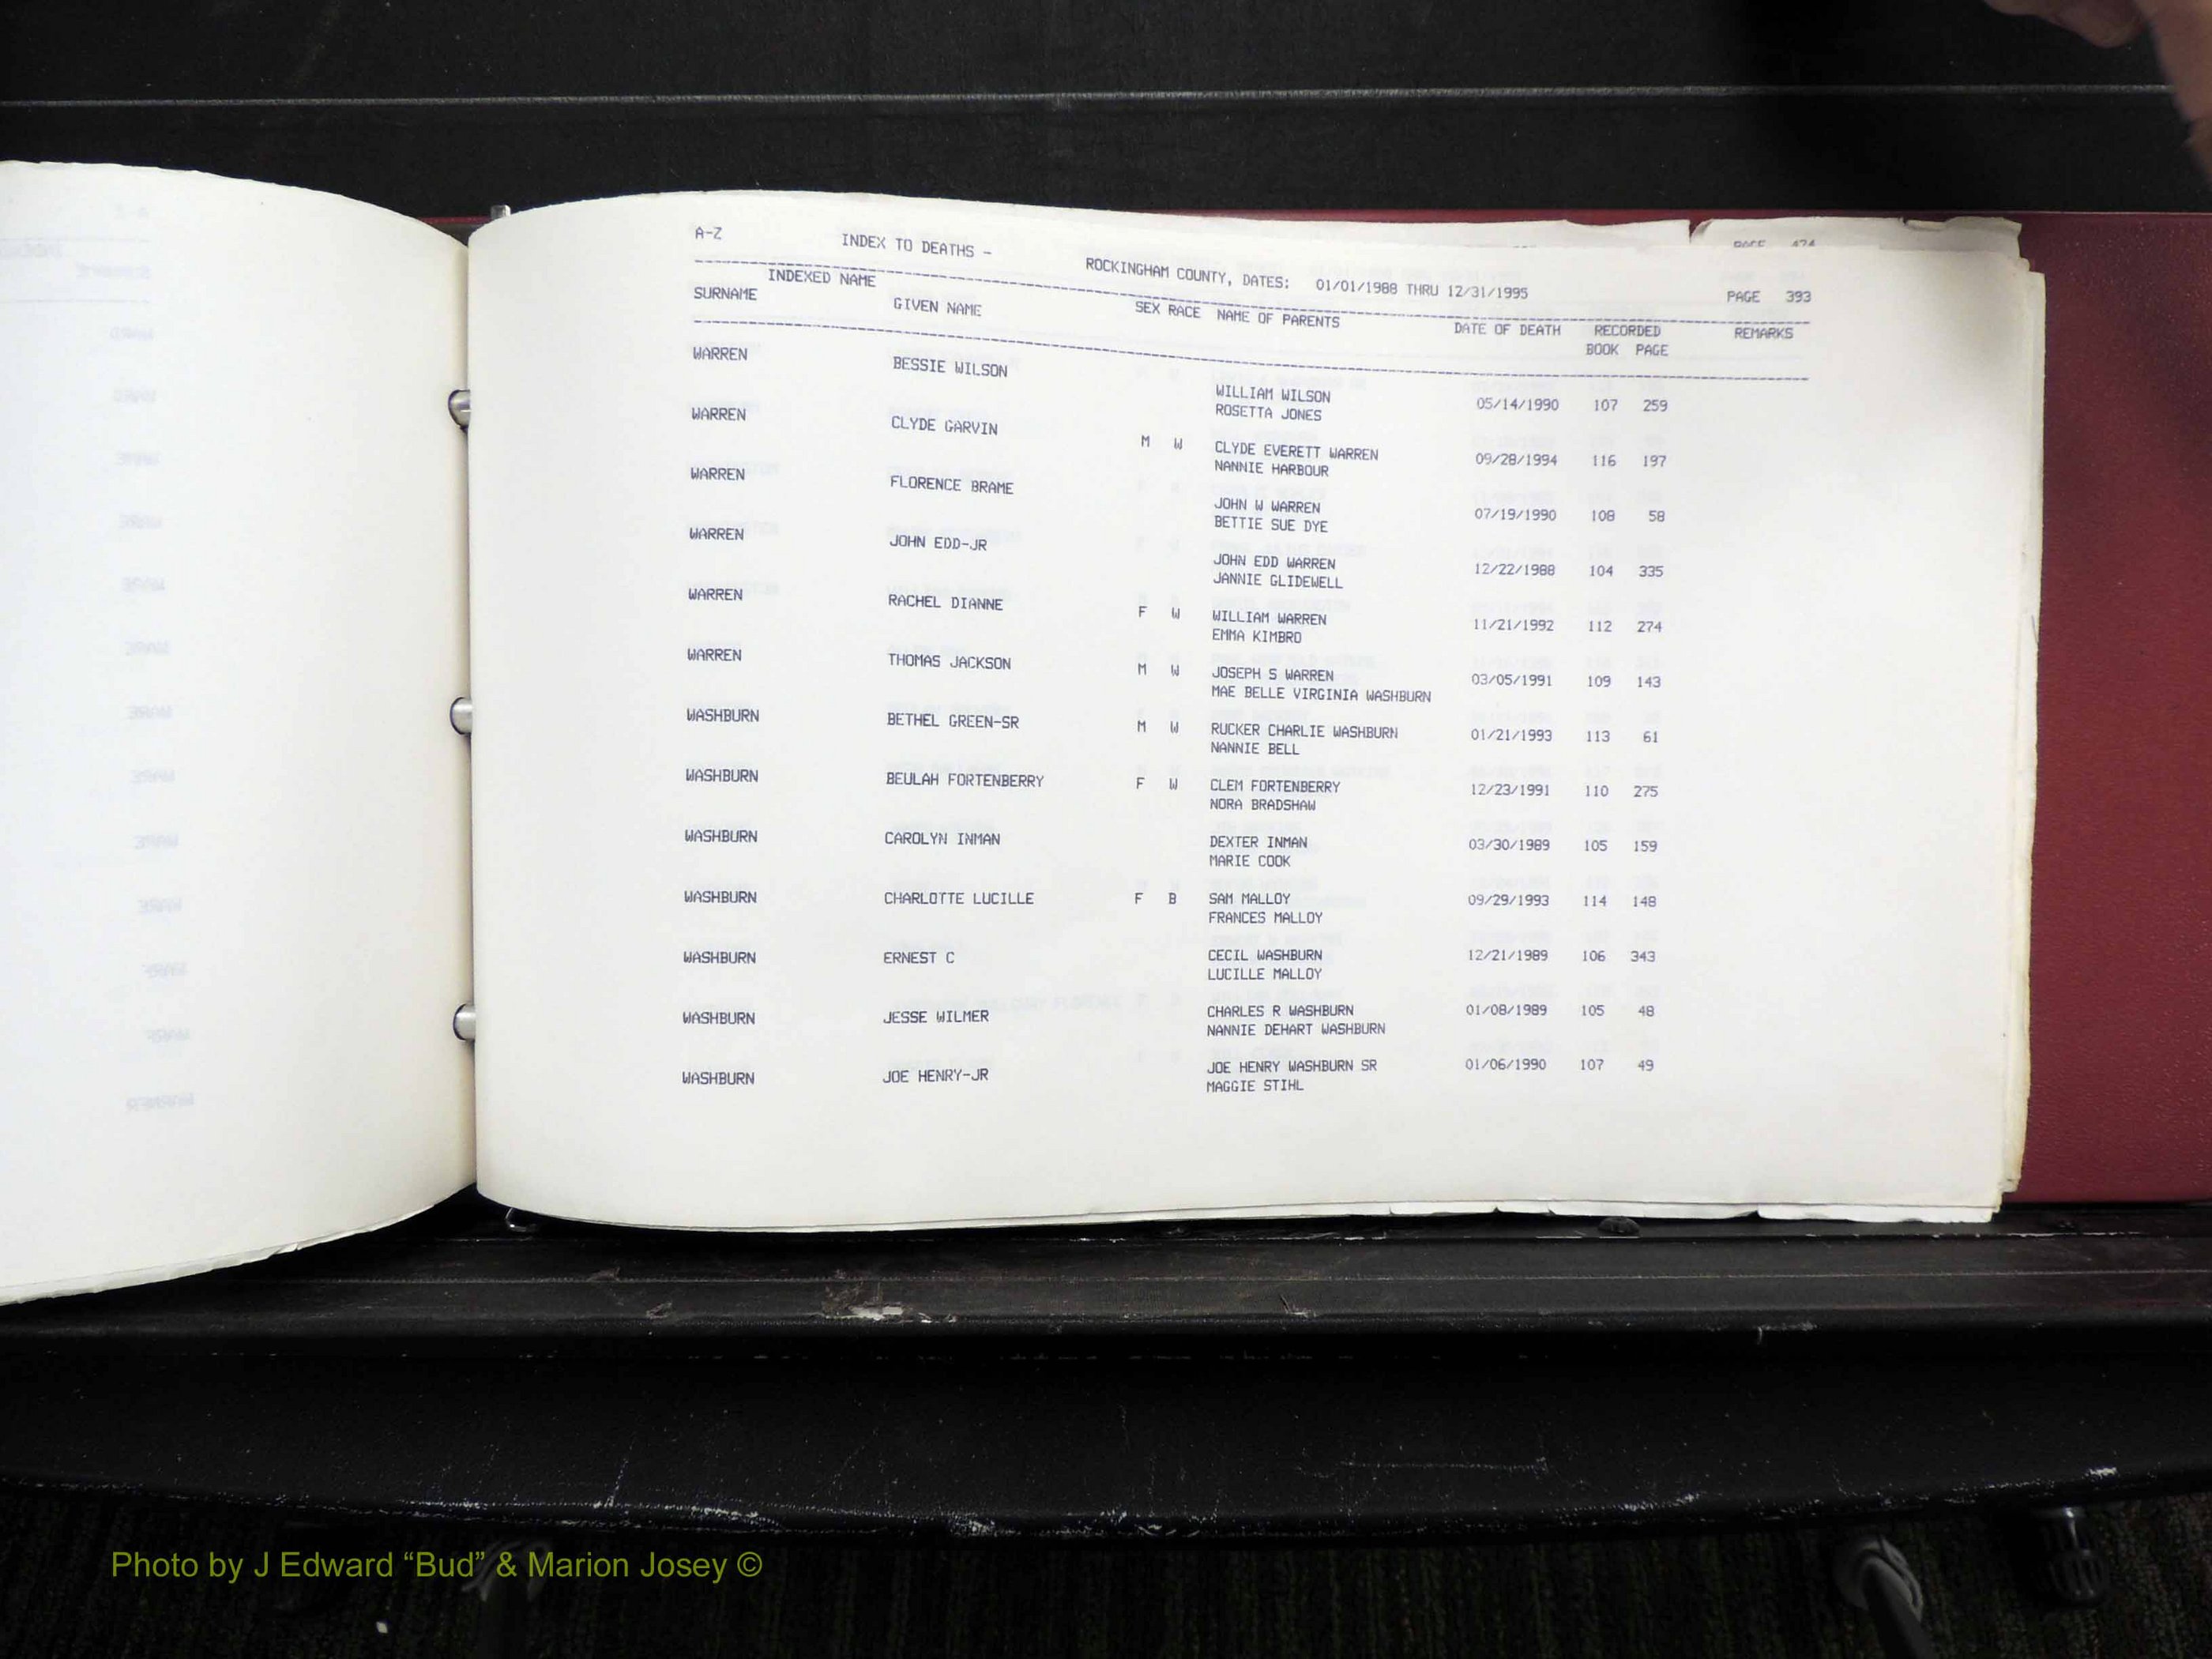 PAGE 474
A-Z INDEX TO DEATHS - ROCKINGHAM COUNTY, DATES: 01/01/1988 THRU 12/31/1995 PAGE 393
INDEXED NAME
SURNAME GIVEN NAME SEX RACE NAME OF PARENTS DATE OF DEATH RECORDED REMARKS
BOOK PAGE
WARREN BESSIE WILSON WILLIAM WILSON 05/14/1990 107 259
ROSETTA JONES
WARREN CLYDE GARVIN M W CLYDE EVERETT WARREN 09/28/1994 116 197
NANNIE HARBOUR
WARREN FLORENCE BRAME JOHN W WARREN 07/19/1990 108 58
BETTIE SUE DYE
WARREN JOHN EDD-JR JOHN EDD WARREN 12/22/1988 104 335
JANNIE GLIDEWELL
WARREN RACHEL DIANNE F W WILLIAM WARREN 11/21/1992 112 274
EMMA KIMBRO
WARREN THOMAS JACKSON M W JOSEPH S WARREN 03/05/1991 109 143
MAE BELLE VIRGINIA WASHBURN
WASHBURN BETHEL GREEN-SR M W RUCKER CHARLIE WASHBURN 01/21/1993 113 61
NANNIE BELL
WASHBURN BEULAH FORTENBERRY F W CLEM FORTENBERRY 12/23/1991 110 275
NORA BRADSHAW
WASHBURN CAROLYN INMAN DEXTER INMAN 03/30/1989 105 159
MARIE COOK
WASHBURN CHARLOTTE LUCILLE F B SAM MALLOY 09/29/1993 114 148
FRANCES MALLOY
WASHBURN ERNEST C CECIL WASHBURN 12/21/1989 106 343
LUCILLE MALLOY
WASHBURN JESSE WILMER CHARLES R WASHBURN 01/08/1989 105 48
NANNIE DEHART WASHBURN
WASHBURN JOE HENRY-JR JOE HENRY WASHBURN SR 01/06/1990 107 49
MAGGIE STIHL
Photo by J Edward “Bud” & Marion Josey ©